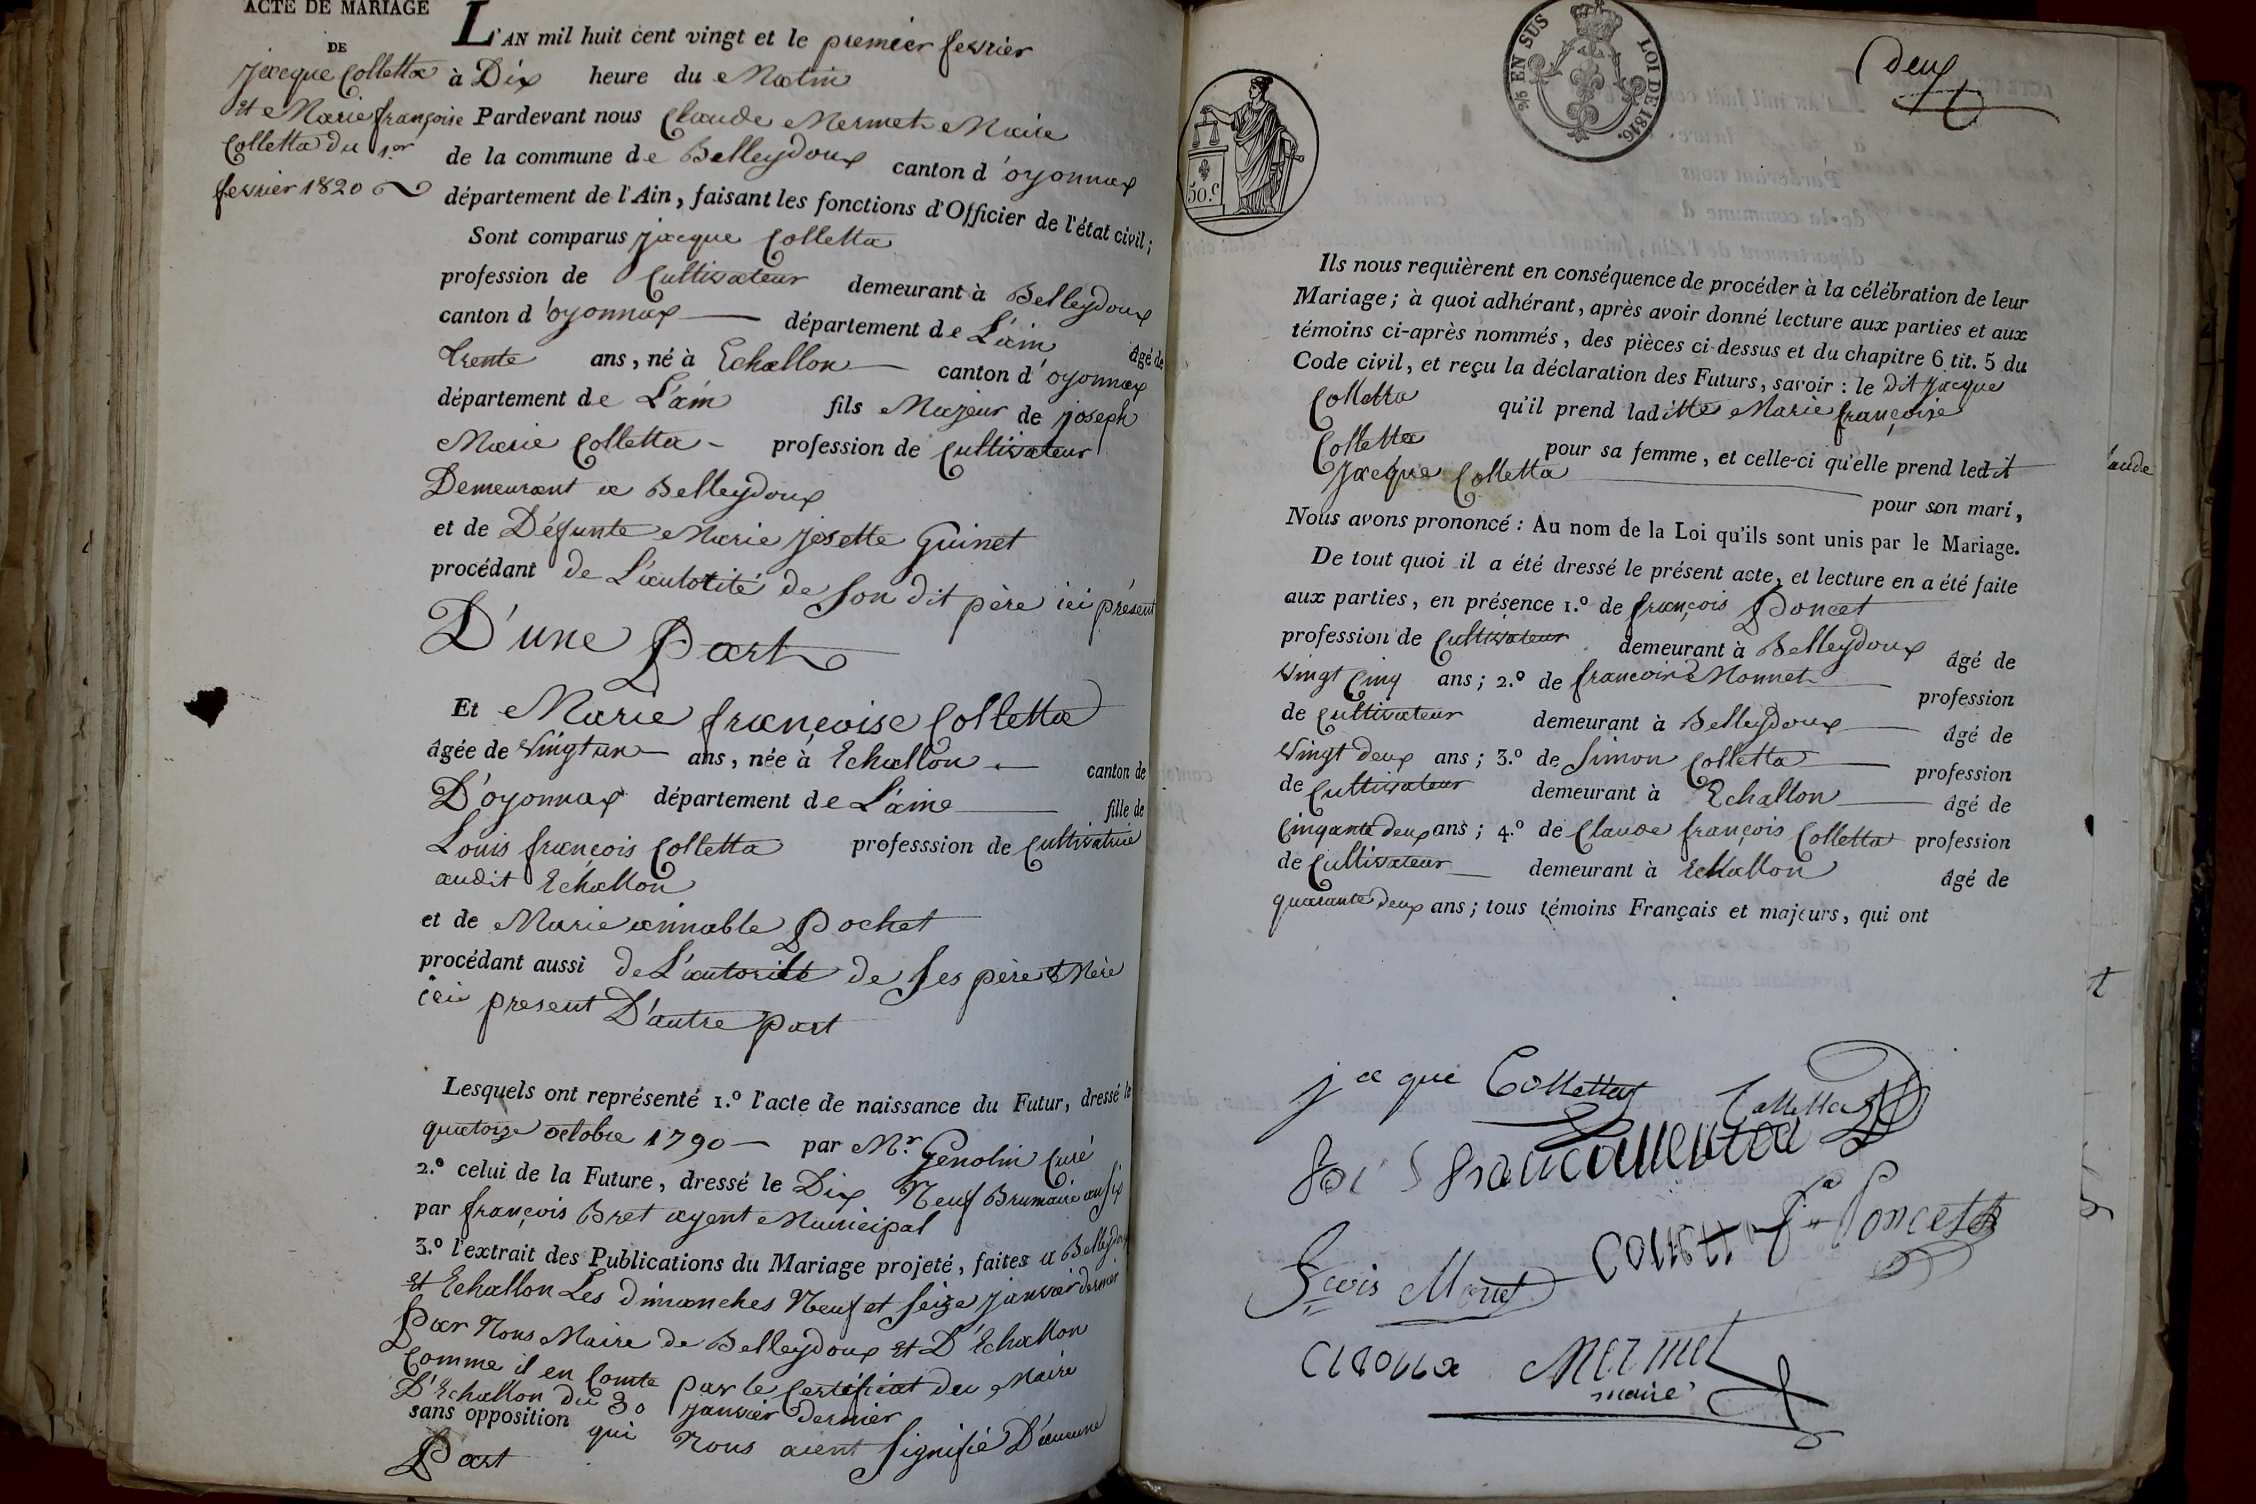 ACTE DE MARIAGE
DE
Jacque Colletta
et Marie françoise
Colletta du 1.er
fevrier 1820
L'AN mil huit cent vingt et le premier fevrier
à Dix heure du Matin
Pardevant nous Claude Mermet Maire
de la commune de Belleydoux canton d'oyonnax
département de l'Ain, faisant les fonctions d'Officier de l'état civil;
Sont comparus Jacque Colletta
profession de Cultivateur demeurant à Belleydoux
canton d'oyonnax département de L'ain âgé de
trente ans, né à Echallon canton d'oyonnax
département de L'ain fils Majeur de joseph
Marie Colletta profession de Cultivateur
Demeurant a Belleydoux
et de Défunte Marie Josette Guinet
procédant de L'autorité de Son dit père ici présent
D'une Part
Et Marie françoise Colletta
âgée de vingt un ans, née à Echallon canton de
D'oyonnax département de L'aine fille de
Louis françois Colletta professsion de Cultivatrice
audit Echallon
et de Marie aimable Pochet
procédant aussi de L'autorité de Ses père et Mère
ici present D'autre part
Lesquels ont représenté 1.º l'acte de naissance du Futur, dressé le
quatorze octobre 1790 par Mr. Genolin Curé
2.º celui de la Future, dressé le Dix Neuf Brumaire an Six
par françois Bret agent Municipal
3.º l'extrait des Publications du Mariage projeté, faites a Belleydoux
et Echallon Les dimanches Neuf et Seize Janvier dernier
Par Nous Maire de Belleydoux et D'Echallon
Comme il en Comte par le Certificat du Maire
D'Echallon du 30 Janvier dernier
sans opposition qui Nous aient Signifié D'aucune
Part
deux
5/6 EN SUS LOI DE 1816.
50.c
Ils nous requièrent en conséquence de procéder à la célébration de leur
Mariage; à quoi adhérant, après avoir donné lecture aux parties et aux
témoins ci-après nommés, des pièces ci-dessus et du chapitre 6 tit. 5 du
Code civil, et reçu la déclaration des Futurs, savoir: le dit Jacque
Colletta qu'il prend laditte Marie françoise
Colletta pour sa femme, et celle-ci qu'elle prend ledit
Jacque Colletta pour son mari,
Nous avons prononcé: Au nom de la Loi qu'ils sont unis par le Mariage.
De tout quoi il a été dressé le présent acte, et lecture en a été faite
aux parties, en présence 1.º de françois Poncet
profession de Cultivateur demeurant à Belleydoux âgé de
vingt Cinq ans; 2.º de francois Monnet profession
de Cultivateur demeurant à Belleydoux âgé de
vingt deux ans; 3.º de Simon Colletta profession
de Cultivateur demeurant à Echallon âgé de
Cinqante deux ans; 4.º de Claude françois Colletta profession
de Cultivateur demeurant à Echallon âgé de
quarante deux ans; tous témoins Français et majeurs, qui ont
jacque Colletta Colletta
Fr Poncet
Fcois Monet
Mermet
maire